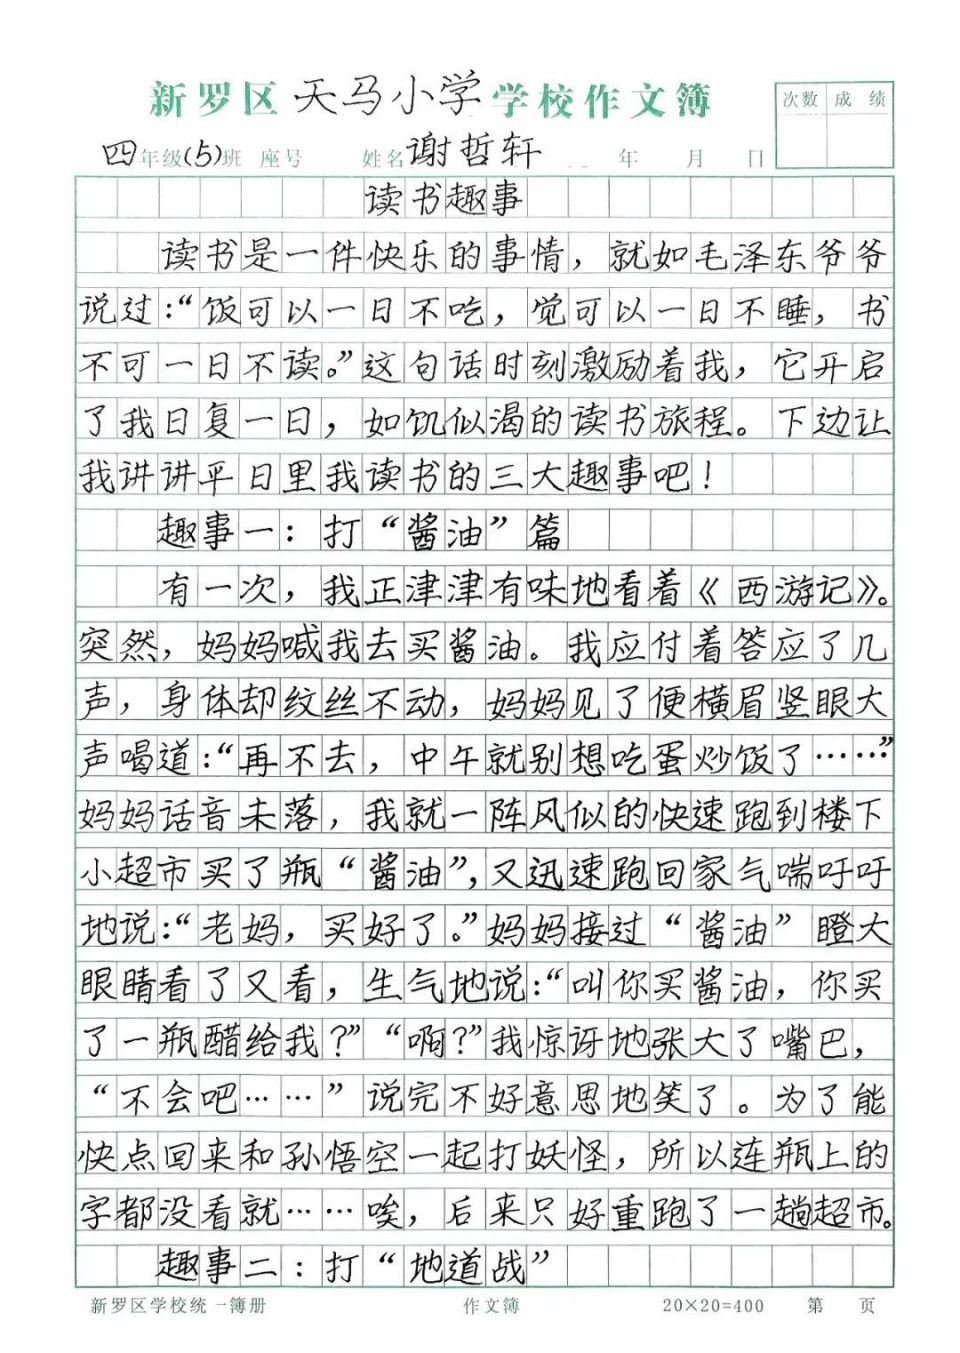 新罗区 天马小学 学校作文簿
次数 成绩
四年级(5)班 座号 姓名 谢哲轩 年 月 日
读书趣事
读书是一件快乐的事情，就如毛泽东爷爷
说过：“饭可以一日不吃，觉可以一日不睡，书
不可一日不读。”这句话时刻激励着我，它开启
了我日复一日，如饥似渴的读书旅程。下边让
我讲讲平日里我读书的三大趣事吧！
趣事一：打“酱油”篇
有一次，我正津津有味地看着《西游记》。
突然，妈妈喊我去买酱油。我应付着答应了几
声，身体却纹丝不动，妈妈见了便横眉竖眼大
声喝道：“再不去，中午就别想吃蛋炒饭了……”
妈妈话音未落，我就一阵风似的快速跑到楼下
小超市买了瓶“酱油”，又迅速跑回家气喘吁吁
地说：“老妈，买好了。”妈妈接过“酱油”瞪大
眼睛看了又看，生气地说：“叫你买酱油，你买
了一瓶醋给我？”“啊？”我惊讶地张大了嘴巴，
“不会吧……”说完不好意思地笑了。为了能
快点回来和孙悟空一起打妖怪，所以连瓶上的
字都没看就……唉，后来只好重跑了一趟超市。
趣事二：打“地道战”
新罗区学校统一簿册 作文簿 20×20=400 第 页